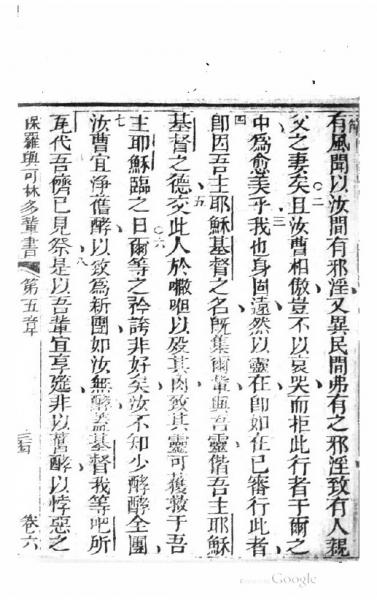 有風聞以汝間有邪淫又異民間弗有之邪淫致有人親
二
父之妻矣且汝曹相傲豈不以哀哭而拒此行者于爾之
三
中為愈美乎我也身固遠然以靈在卽如在已審行此者
四
卽因吾主耶穌基督之名旣集爾輩與吾靈偕吾主耶穌
五
基督之德交此人於以毀其肉致其靈可獲救于吾
六
主耶穌臨之日爾等之矜誇非好矣汝不知少酵酵全團
七
汝曹宜淨舊酵以致為新團如汝無酵蓋基督我等吧所
八
瓦代吾儕已見祭是以吾輩宜享筵非以舊酵以悖惡之
保羅與可林多輩書 第五章 卷六
Google